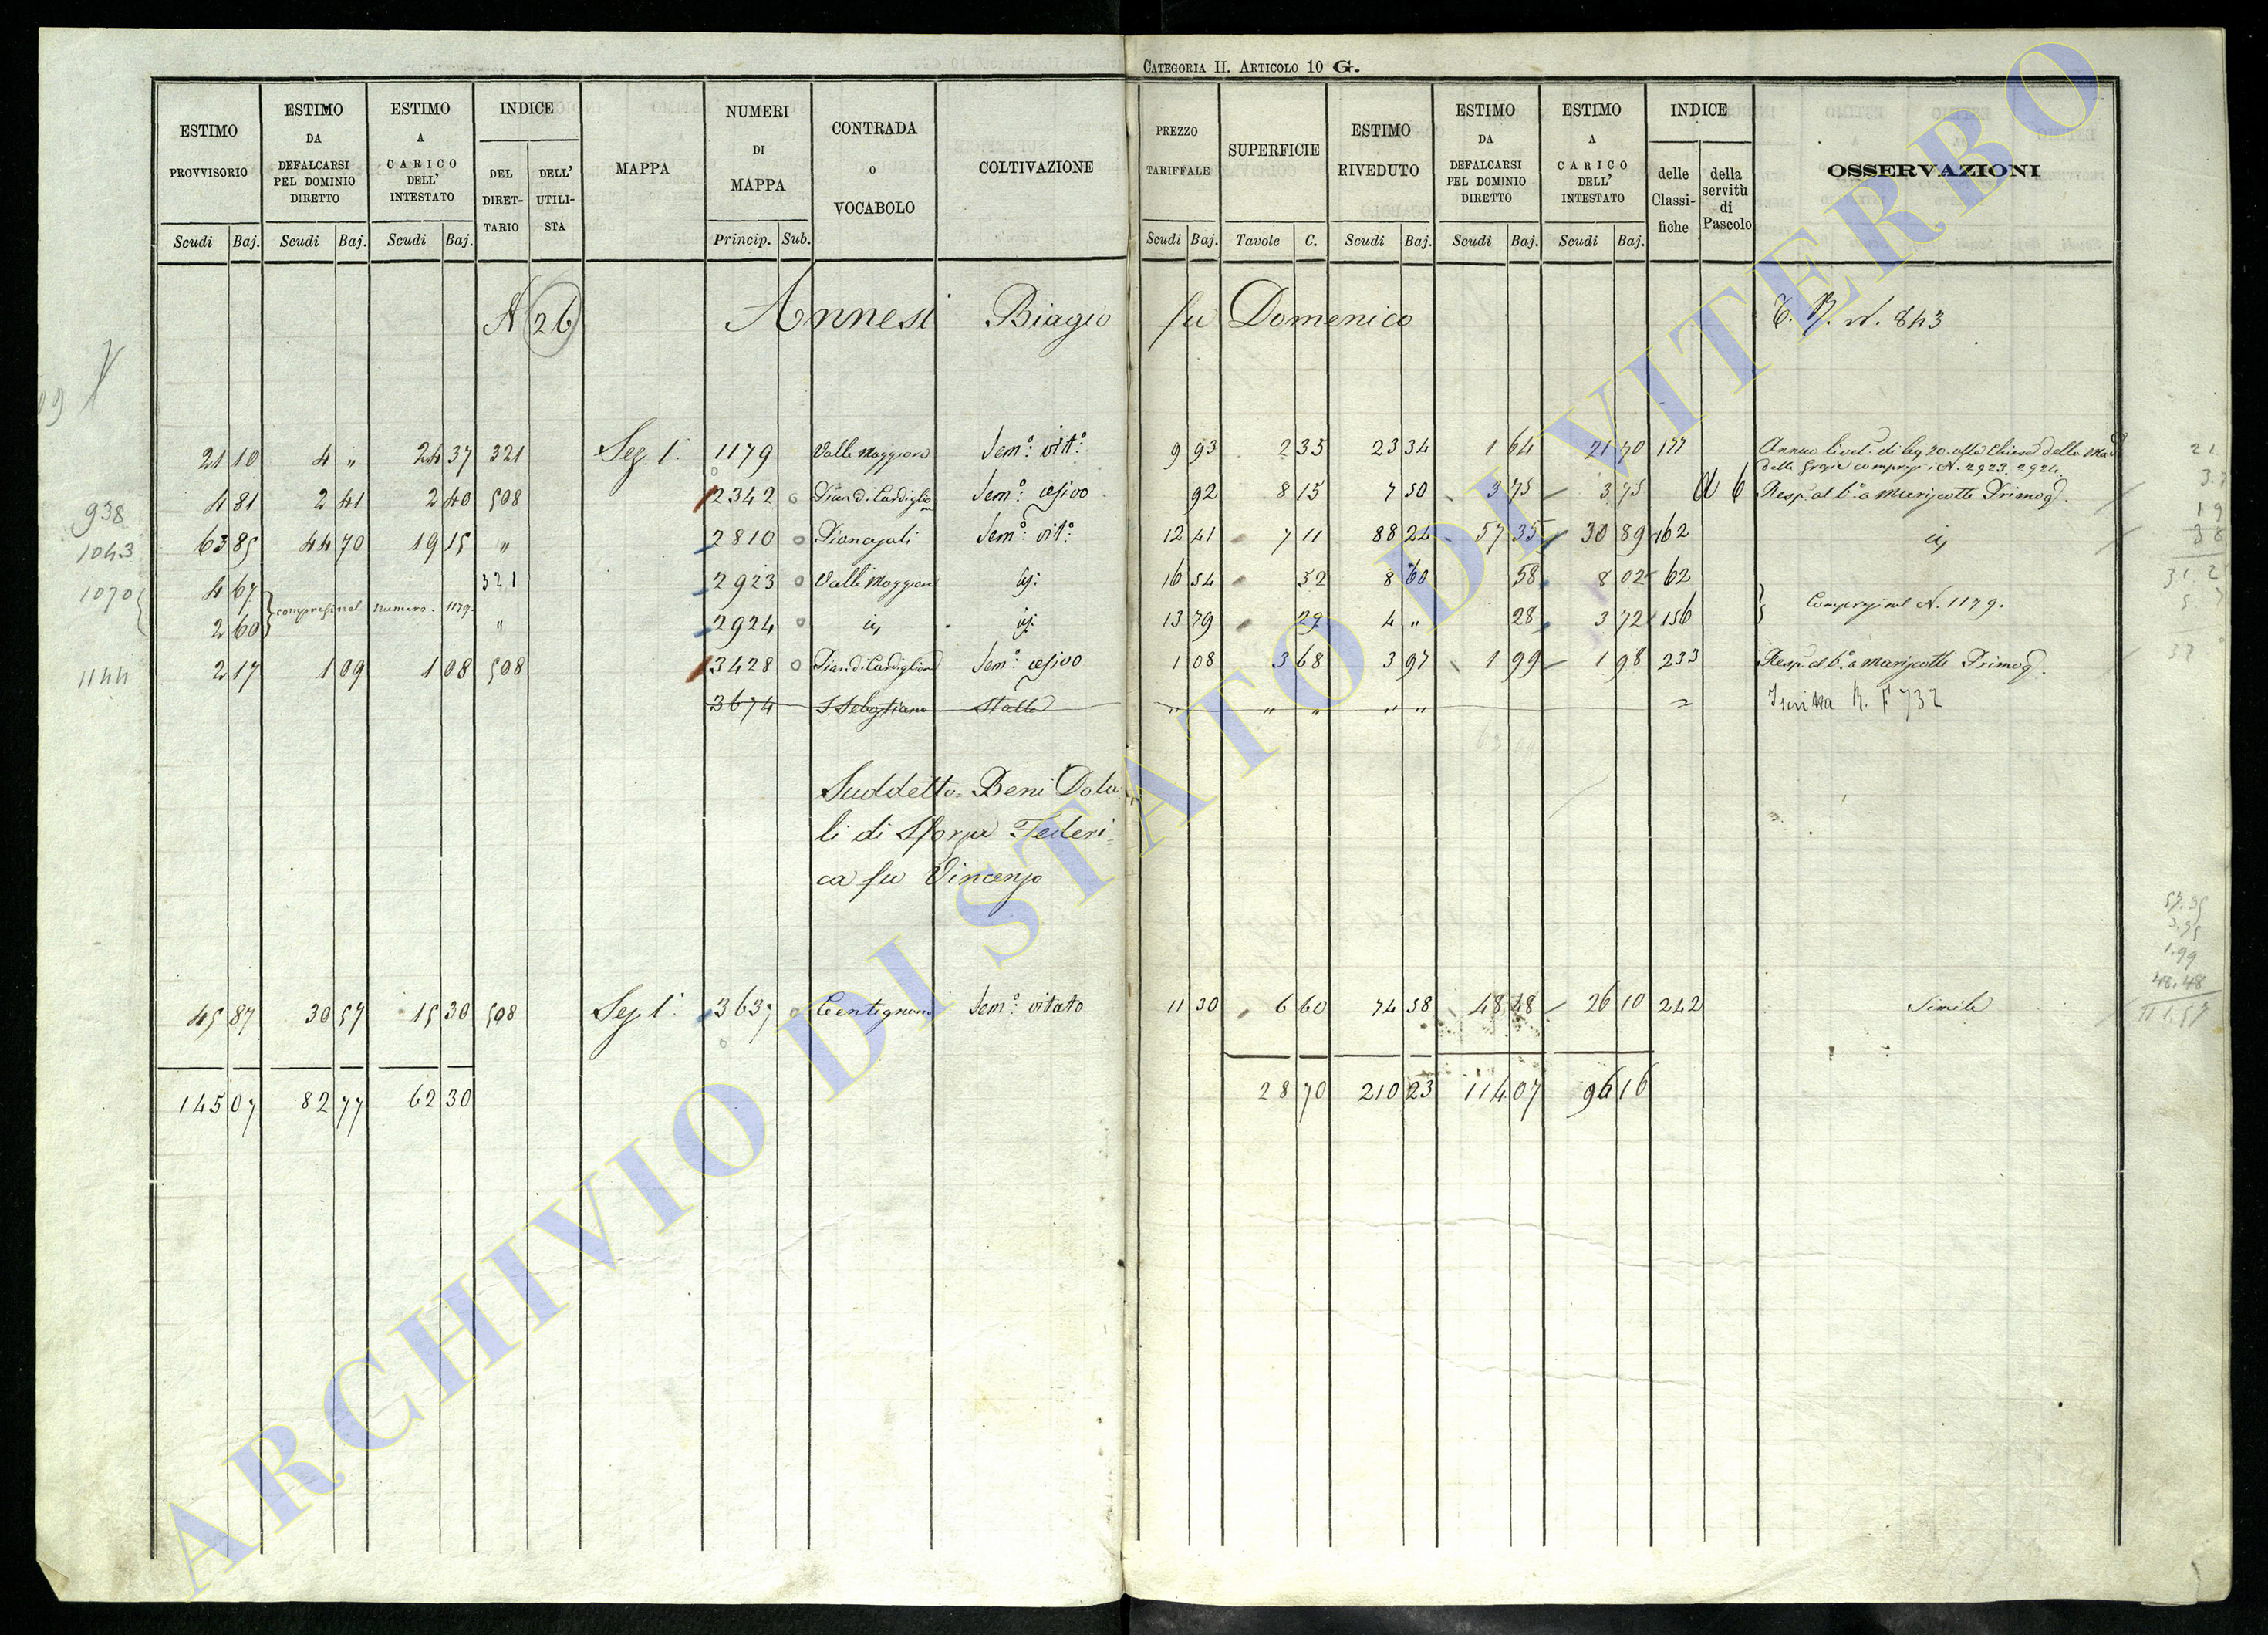 CATEGORIA II. ARTICOLO 10 G.
ESTIMO PROVVISORIO
ESTIMO DA DEFALCARSI PEL DOMINIO DIRETTO
ESTIMO A CARICO DELL' INTESTATO
INDICE
DEL DIRETTARIO
DELL' UTILISTA
MAPPA
NUMERI DI MAPPA
CONTRADA o VOCABOLO
COLTIVAZIONE
PREZZO TARIFFALE
SUPERFICIE
ESTIMO RIVEDUTO
ESTIMO DA DEFALCARSI PEL DOMINIO DIRETTO
ESTIMO A CARICO DELL' INTESTATO
INDICE
delle Classifiche
della servitù di Pascolo
OSSERVAZIONI
Scudi Baj. Scudi Baj. Scudi Baj. Princip. Sub. Scudi Baj. Tavole C. Scudi Baj. Scudi Baj. Scudi Baj.
N 26 Annesi Biagio fu Domenico T. R. N. 843
21 10 4 " 24 37 321 Sez. 1. 1179 Valle Maggiore Sem.o vit.o 9 93 2 35 23 34 1 64 21 70 177
dello Grazie compresi i N. 2923. 2924.
938 4 81 2 41 2 40 508 2342 Sem.o cesivo 92 8 15 7 50 3 75 3 75 a 6 Resp. al b.o a Mariscotti Primog.
1043 63 85 44 70 19 15 " 2810 Sem.o vit.o 12 41 7 11 88 24 57 35 30 89 162
1070 4 67 compresi nel numero 1179. 321 2923 Valle Maggiore 16 54 52 8 60 58 8 02 62 Compresi nel N. 1179.
2 60 " 2924 13 79 29 4 " 28 3 72 156
1144 2 17 1 09 1 08 508 3428 Sem.o cesivo 1 08 3 68 3 97 1 99 1 98 233 Resp. al b.o a Mariscotti Primog.
3674 S. Sebastiano Stalla " " " " " Iscritta R. F 732
Suddetto Beni Dota
li di Sforza Federi=
ca fu Vincenzo
57.35
3.75
1.99
48.48
45 87 30 57 15 30 508 Sez 1. 3637 Centignano Sem.o vitato 11 30 6 60 74 58 48 48 26 10 242 Simile
111.57
145 07 82 77 62 30 28 70 210 23 114 07 96 16
ARCHIVIO DI STATO DI VITERBO